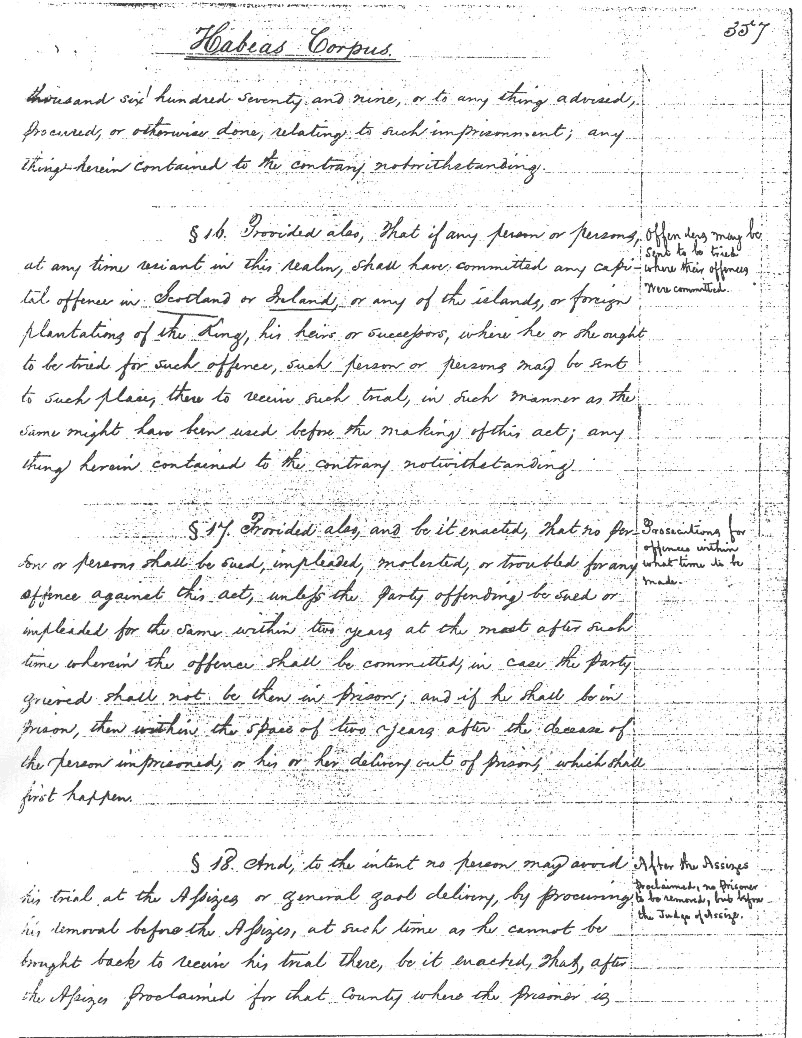 357
Habeas Corpus.
thousand six hundred seventy and nine, or to any thing advised,
procured, or otherwise done, relating to such imprisonment; any
thing herein contained to the contrary notwithstanding.
§ 16. Provided also, That if any person or persons,
at any time resiant in this realm, shall have committed any capi-
tal offence in Scotland or Ireland, or any of the islands, or foreign
plantations of the King, his heirs or successors, where he or she ought
to be tried for such offence, such person or persons may be sent
to such place, there to receive such trial, in such manner as the
same might have been used before the making of this act; any
thing herein contained to the contrary notwithstanding
Offenders may be
sent to be tried
where their offences
were committed.
§ 17. Provided also, and be it enacted, That no per-
son or persons shall be sued, impleaded, molested, or troubled for any
offence against this act, unless the Party offending be sued or
impleaded for the same within two years at the most after such
time wherein the offence shall be committed, in case the Party
grieved shall not be then in prison; and if he shall be in
Prison, then within the space of two years after the decease of
the person imprisoned, or his or her delivery out of prison, which shall
first happen.
Prosecutions for
offences within
what time to be
made.
§ 18. And, to the intent no person may avoid
his trial at the Assizes or general gaol delivery, by procuring
his removal before the Assizes, at such time as he cannot be
brought back to receive his trial there, be it enacted, That, after
the Assizes proclaimed for that County where the prisoner is
After the Assizes
Proclaimed, no Prisoner
to be removed, but before
the Judge of Assize.